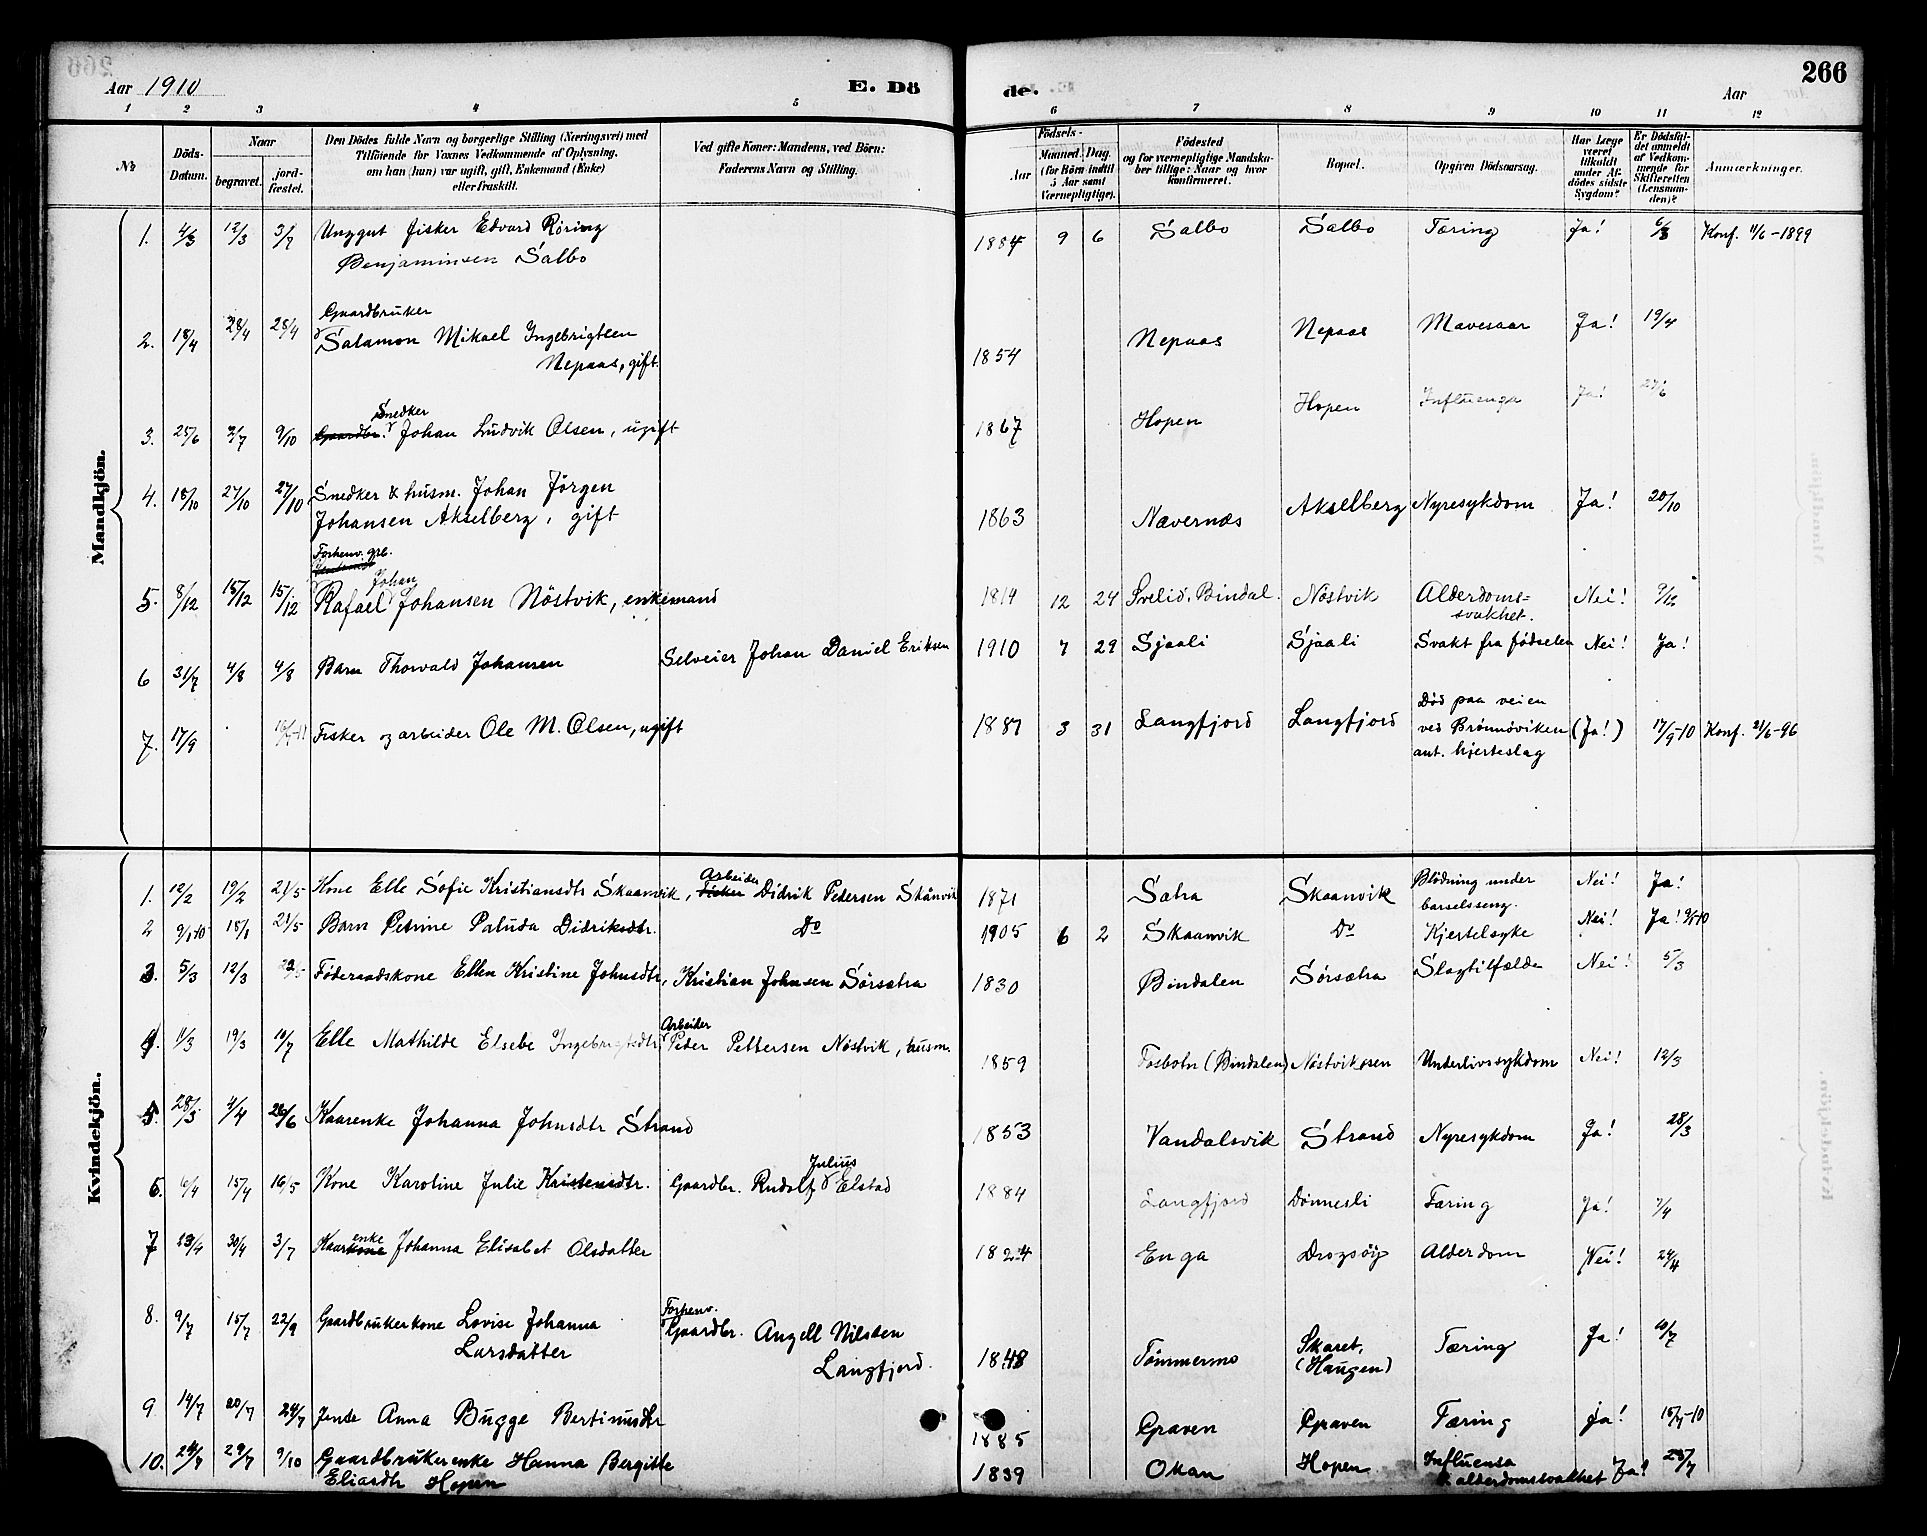 Aar 1910
E. Döde.
Aar
266
1 2 3 4 5 6 7 8 9 10 11 12
№
Döds-Datum.
Naar
begravet.
jordfæstet.
Den Dödes fulde Navn og borgerlige Stilling (Næringsvei) med
Tilföiende for Voxnes Vedkommende af Oplysning,
om han (hun) var ugift, gift, Enkemand (Enke)
eller fraskilt.
Ved gifte Koner: Mandens, ved Börn:
Faderens Navn og Stilling.
Födsels-
Aar
Maaned. Dag.
(for Börn indtil
5 Aar samt
Værnepligtige).
Födested
og for værnepligtige Mandskaber
tillige: Naar og hvor
konfirmeret.
Bopæl.
Opgiven Dödsaarsag.
Har Læge
været
tilkaldt
under Afdödes
sidste
Sygdom?
Er Dödsfaldet
anmeldt
af Vedkommende
for
Skifteretten
(Lensmanden)?
Anmærkninger.
Mandkjön.
1. 4/3 12/3 3/7 Unggut fisker Edvard Röring 1884 9 6 Salbo Salbo Tæring Ja! 6/3 Konf. 11/6-1899
Benjaminsen Salbo
Gaardbruker
2. 18/4 28/4 28/4 Salamon Mikael Ingebrigtsen 1854 Nepaas Nepaas Mavesaar Ja! 19/4
Nepaas, gift.
Snedker
3. 25/6 2/7 9/10 Gaardbr. Johan Ludvik Olsen, ugift 1867 Hopen Hopen Influenza Ja! 27/6
4. 18/10 27/10 27/10 Snedker & husm. Johan Jörgen 1863 Nævernæs Akselberg Nyresykdom Ja! 20/10
Johansen Akselberg, gift
Forhenv. grb.
Johan
5. 8/12 15/12 15/12 Rafael Johansen Nöstvik, enkemand 1819 12 24 Svelid, Bindal. Nöstvik Alderdoms= Nei! 9/12
svakhet.
6 31/7 4/8 4/8 Barn Thorvald Johansen Selveier Johan Daniel Eriksen 1910 7 29 Sjaali Sjaali Svakt fra födselen Nei! Ja!
7. 17/9 Fisker og arbeider Ole M. Olsen, ugift 1881 3 31 Langfjord Langfjord Död paa veien
ved Brönnöviken (Ja!) 17/9-10 Konf. 21/6-96
ant. hjerteslag
Kvindekjön.
Arbeider
1. 12/2 19/2 21/5 Kone Elle Sofie Kristiansdtr Skaanvik, Fisker Didrik Pedersen Skånvik 1871 Sætra Skaanvik Blödning under Nei! Ja!
barselsseng.
2 9/1-10 15/1 21/5 Barn Petrine Paluda Didriksdtr. Do 1905 6 2 Skaanvik Do Kjertelsyke Nei! Ja! 9/1-10
3. 5/3 12/3 Föderaadskone Ellen Kristine Johnsdtr, Kristian Johnsen Sörsætra 1830 Bindalen Sörsætra Slagtilfælde Nei! 5/3
Arbeider
4. 11/3 19/3 10/7 Elle Mathilde Elsebe Ingebrigtsdtr Peder Pettersen Nöstvik, husm. 1859 Fosbotn (Bindalen) Nöstvikosen Underlivssykdom Nei! 12/3
5. 28/3 4/4 26/6 Kaarenke Johanna Johnsdtr Strand 1853 Vandalsvik Strand Nyresykdom Ja! 28/3
Julius
6. 6/4 15/4 16/5 Kone Karoline Julie Kristensdtr. Gaardbr. Rudolf Elstad 1884 Langfjord Dönnesli Tæring Ja! 7/4
enke
7 23/4 30/4 3/7 Kaarkone Johanna Elisabet Olsdatter 1824 Enga Drogsöy Alderdom Nei! 24/4
Forhenv.
8. 9/7 15/7 22/9 Gaardbrukerkone Lovise Johanna Gaardbr. Angell Nilssen 1848 Tömmermo Skaret, Tæring Ja! 10/7
Larsdatter Langfjord. (Haugen)
9 14/7 20/7 24/7 Jente Anna Bugge Bertinusdtr 1885 Graven Graven Tæring Ja! 15/7-10
10. 24/7 29/7 9/10 Gaardbrukerenke Hanna Bergitte 1839 Okan Hopen Influensa 25/7
Eliasdtr Hopen & alderdomssvakhet Ja!